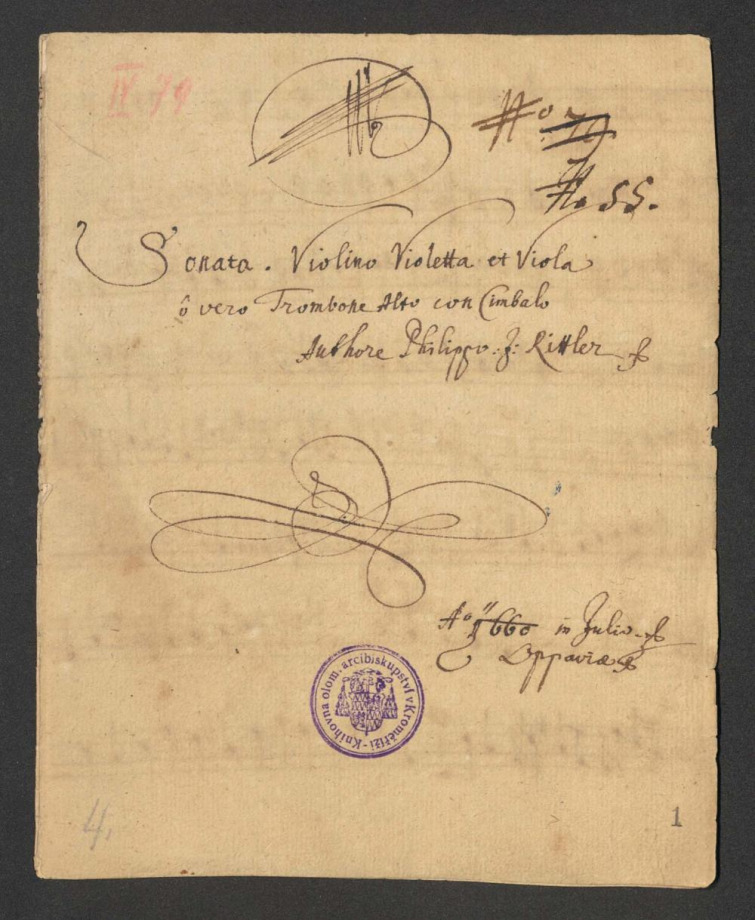 IV 79
No. 79
No. 55.
Sonata. Violino Violetta et Viola
ô vero Trombone Alto con Cimbalo
Authore Philippo: J: Rittler
Ao 1660 in Julio
Oppaviæ
Knihovna olom. arcibiskupství v Kroměříži
4.
1